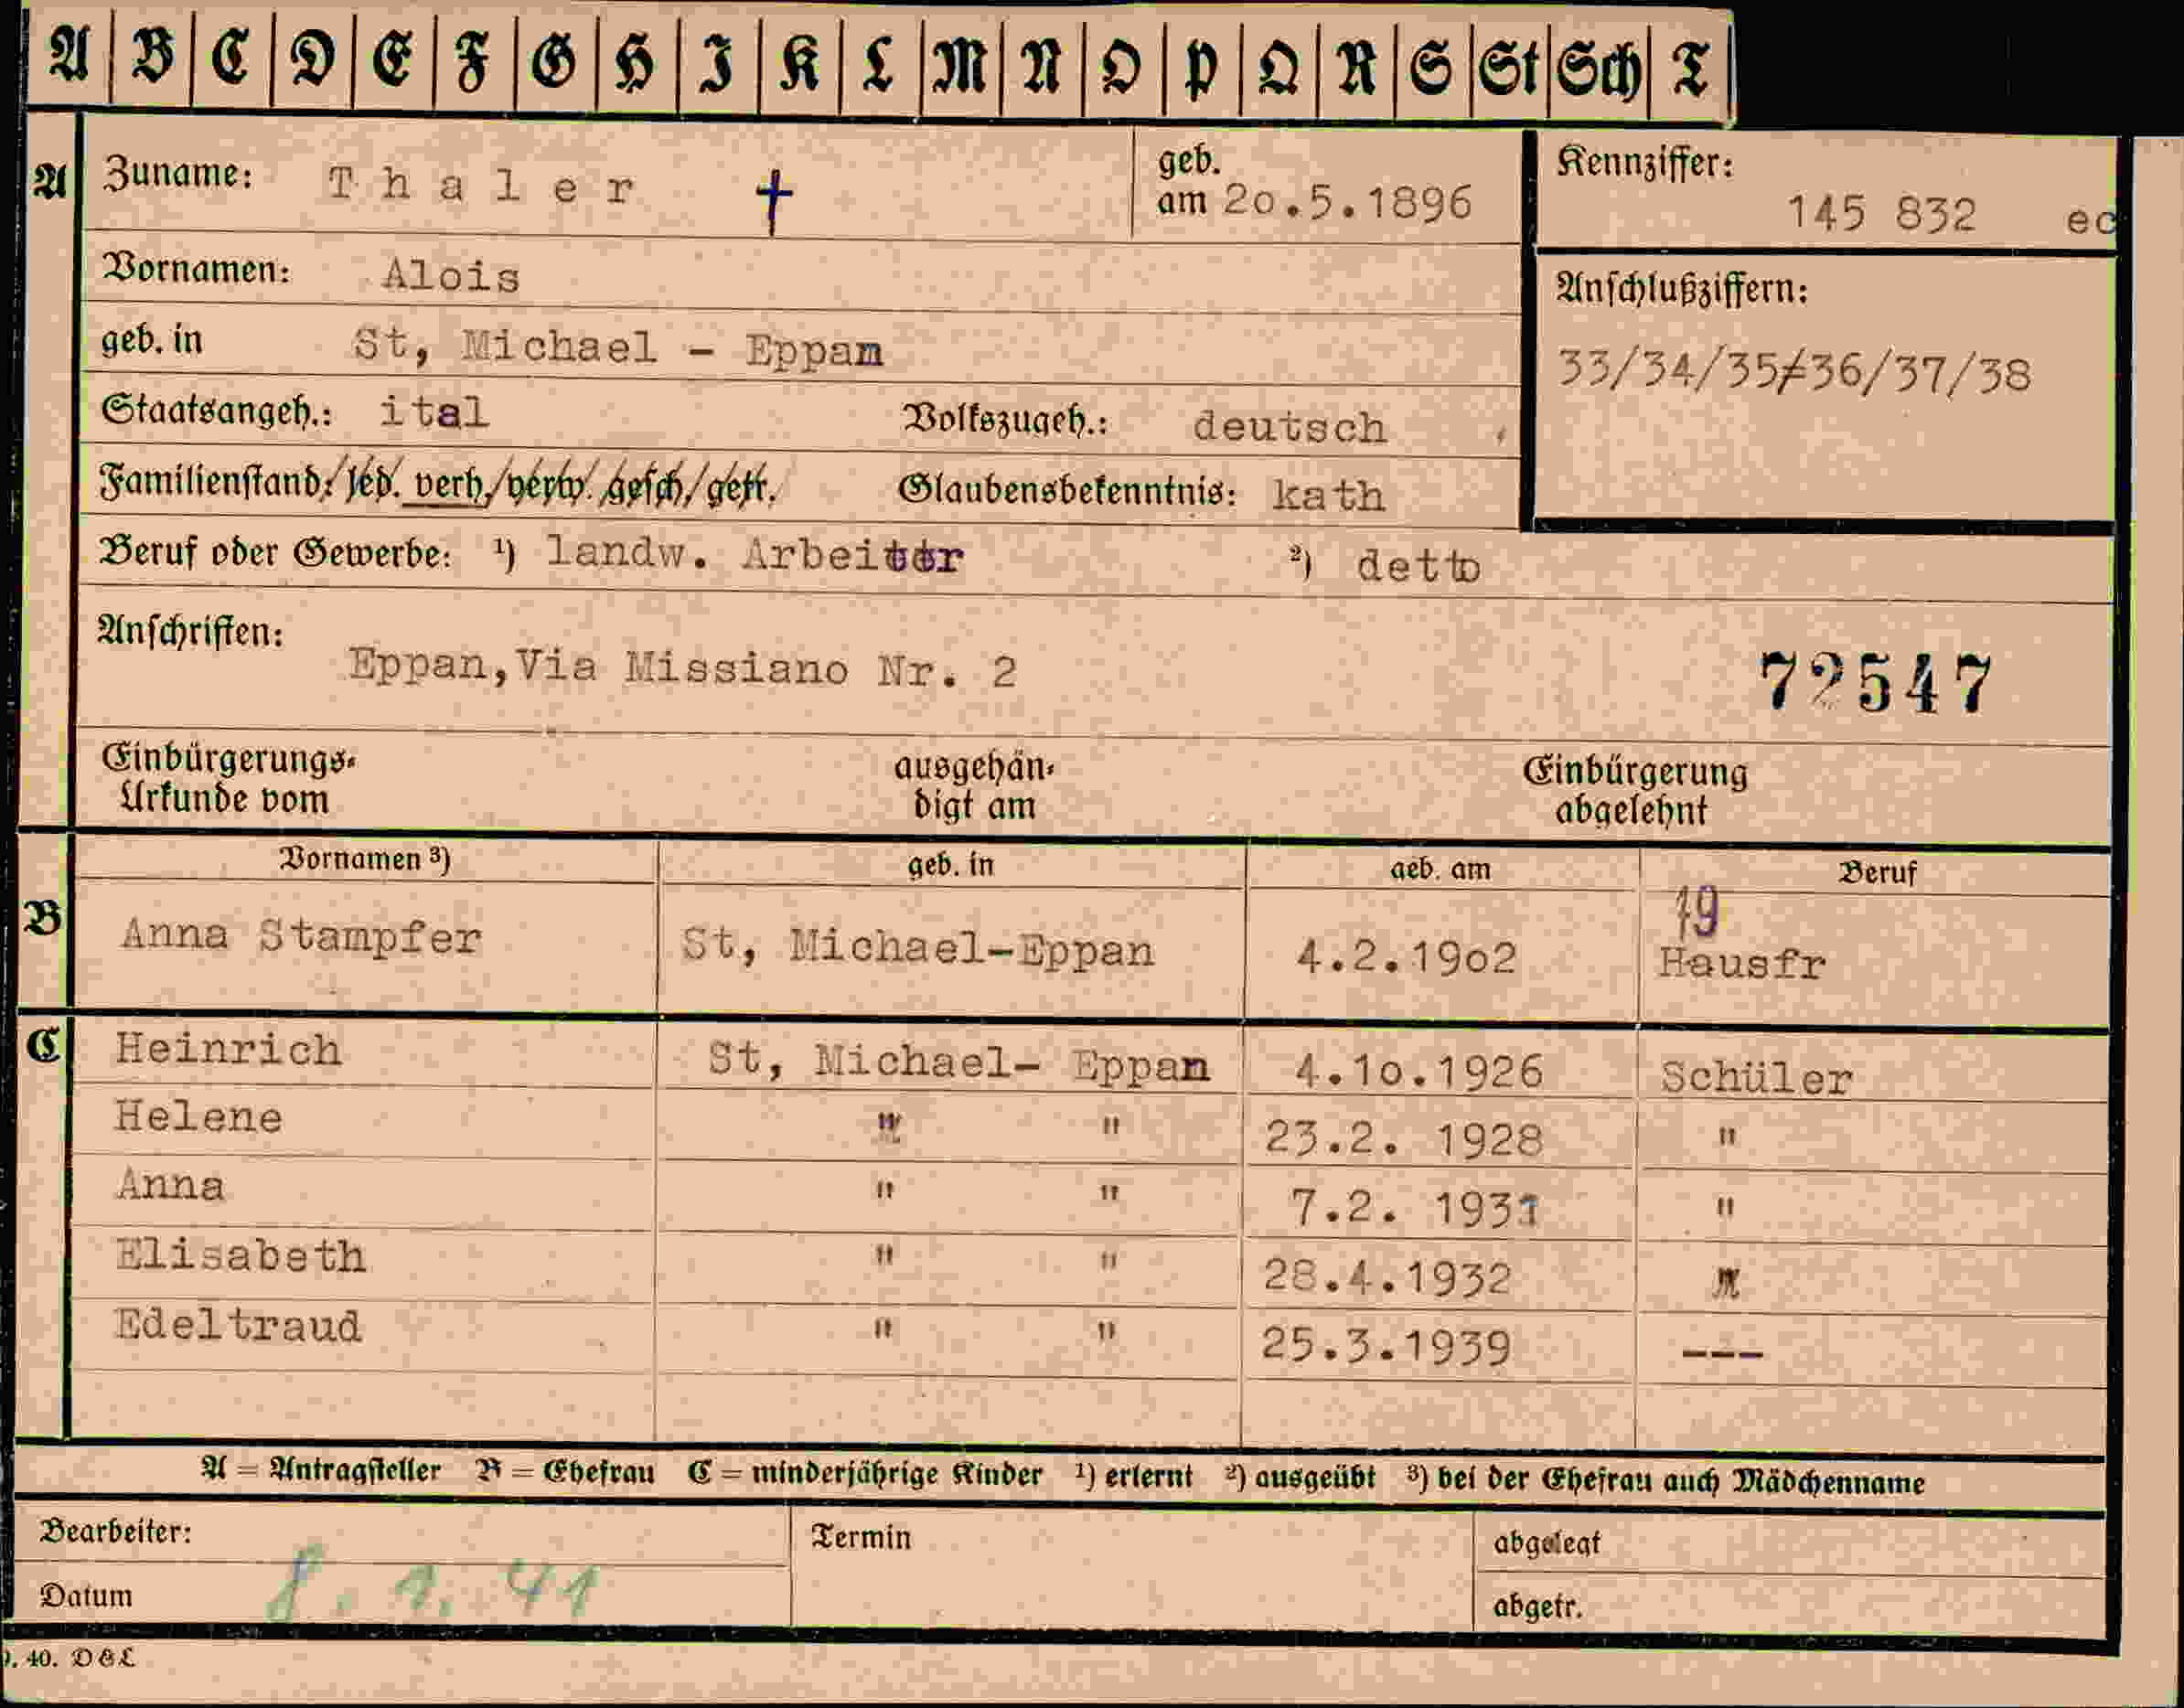 A B C D E F G H I K L M N O P Q R S St Sch T
A Zuname: Thaler † geb. am 20.5.1896 Kennziffer: 145 832 ec
Vornamen: Alois
Anschlußziffern:
geb. in St, Michael - Eppan
33/34/35/36/37/38
Staatsangeh.: ital Volkszugeh.: deutsch
Familienstand: led. verh. verw. gesch. getr. Glaubensbekenntnis: kath
Beruf oder Gewerbe: ¹) landw. Arbeiter ²) detto
Anschriften: Eppan,Via Missiano Nr. 2
72547
Einbürgerungs-Urkunde vom ausgehändigt am Einbürgerung abgelehnt
Vornamen ³) geb. in geb. am Beruf
19
B Anna Stampfer St, Michael-Eppan 4.2.1902 Hausfr
C Heinrich St, Michael- Eppan 4.10.1926 Schüler
Helene " " 23.2. 1928 "
Anna " " 7.2. 1931 "
Elisabeth " " 28.4.1932 "
Edeltraud " " 25.3.1939 ---
A = Antragsteller B = Ehefrau C = minderjährige Kinder ¹) erlernt ²) ausgeübt ³) bei der Ehefrau auch Mädchenname
Bearbeiter: Termin abgelegt
Datum 8. 1. 41 abgetr.
40. D&L